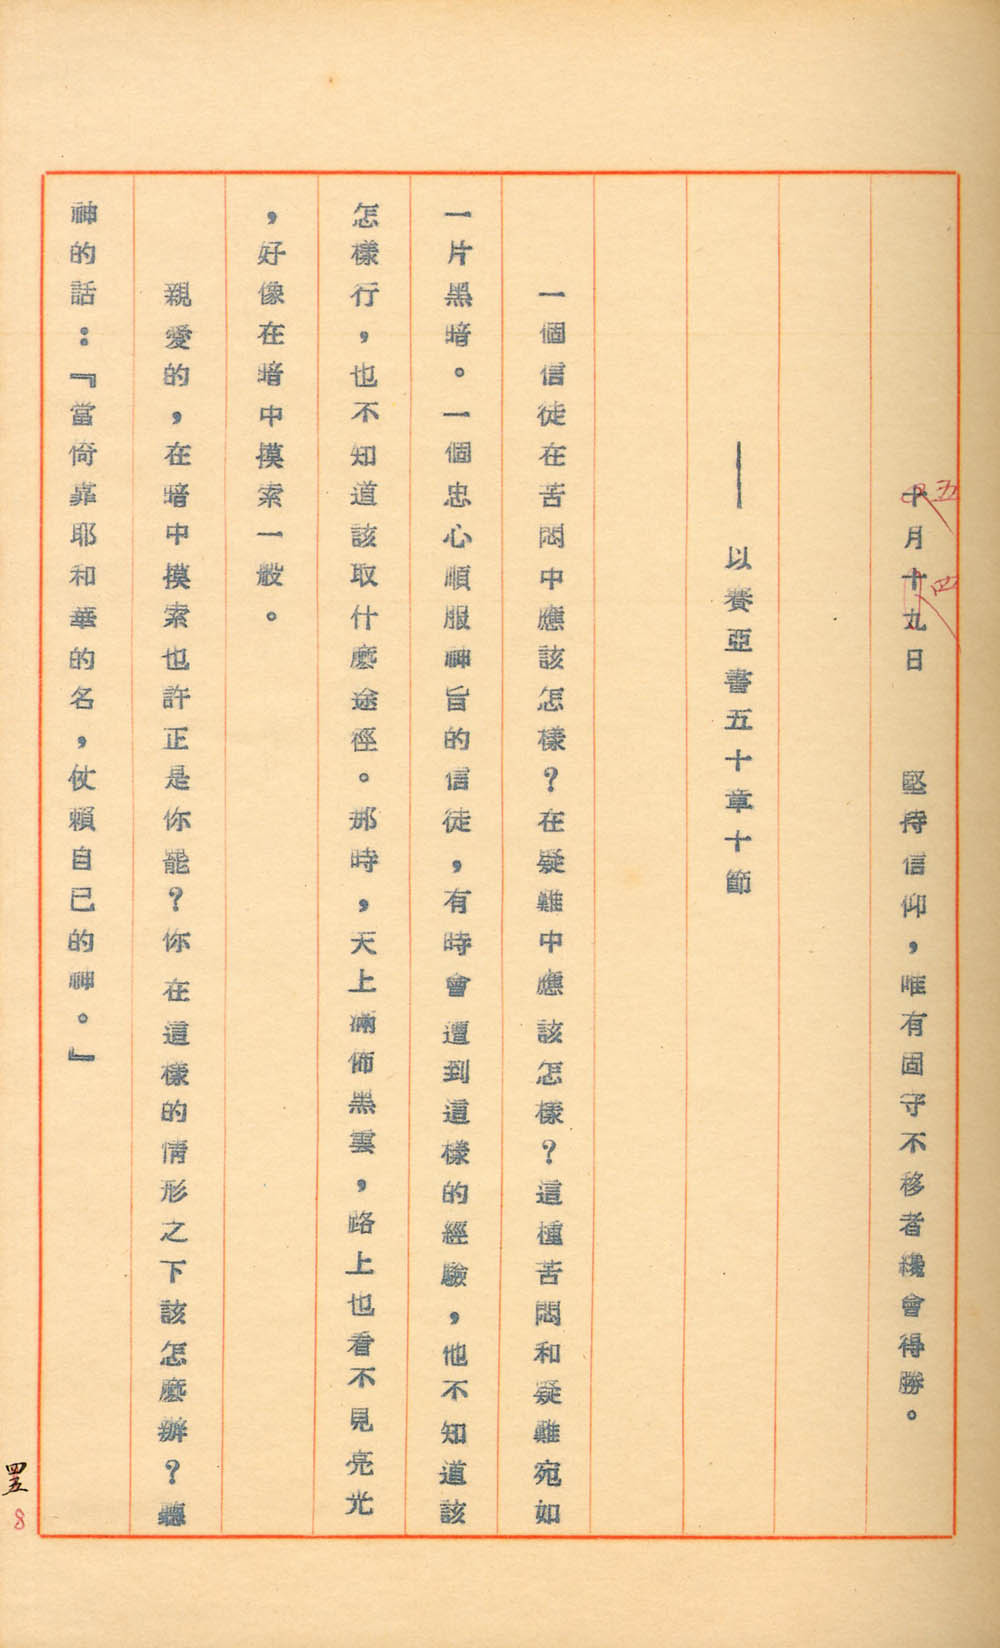 十月十九日　堅持信仰，唯有固守不移者纔會得勝。
五
四
——以賽亞書五十章十節
一個信徒在苦悶中應該怎樣？在疑難中應該怎樣？這種苦悶和疑難宛如
一片黑暗。一個忠心順服神旨的信徒，有時會遭到這樣的經驗，他不知道該
怎樣行，也不知道該取什麼途徑。那時，天上滿佈黑雲，路上也看不見亮光
，好像在暗中摸索一般。
親愛的，在暗中摸索也許正是你罷？你在這樣的情形之下該怎麼辦？聽
神的話：『當倚靠耶和華的名，仗賴自已的神。』
四五
8